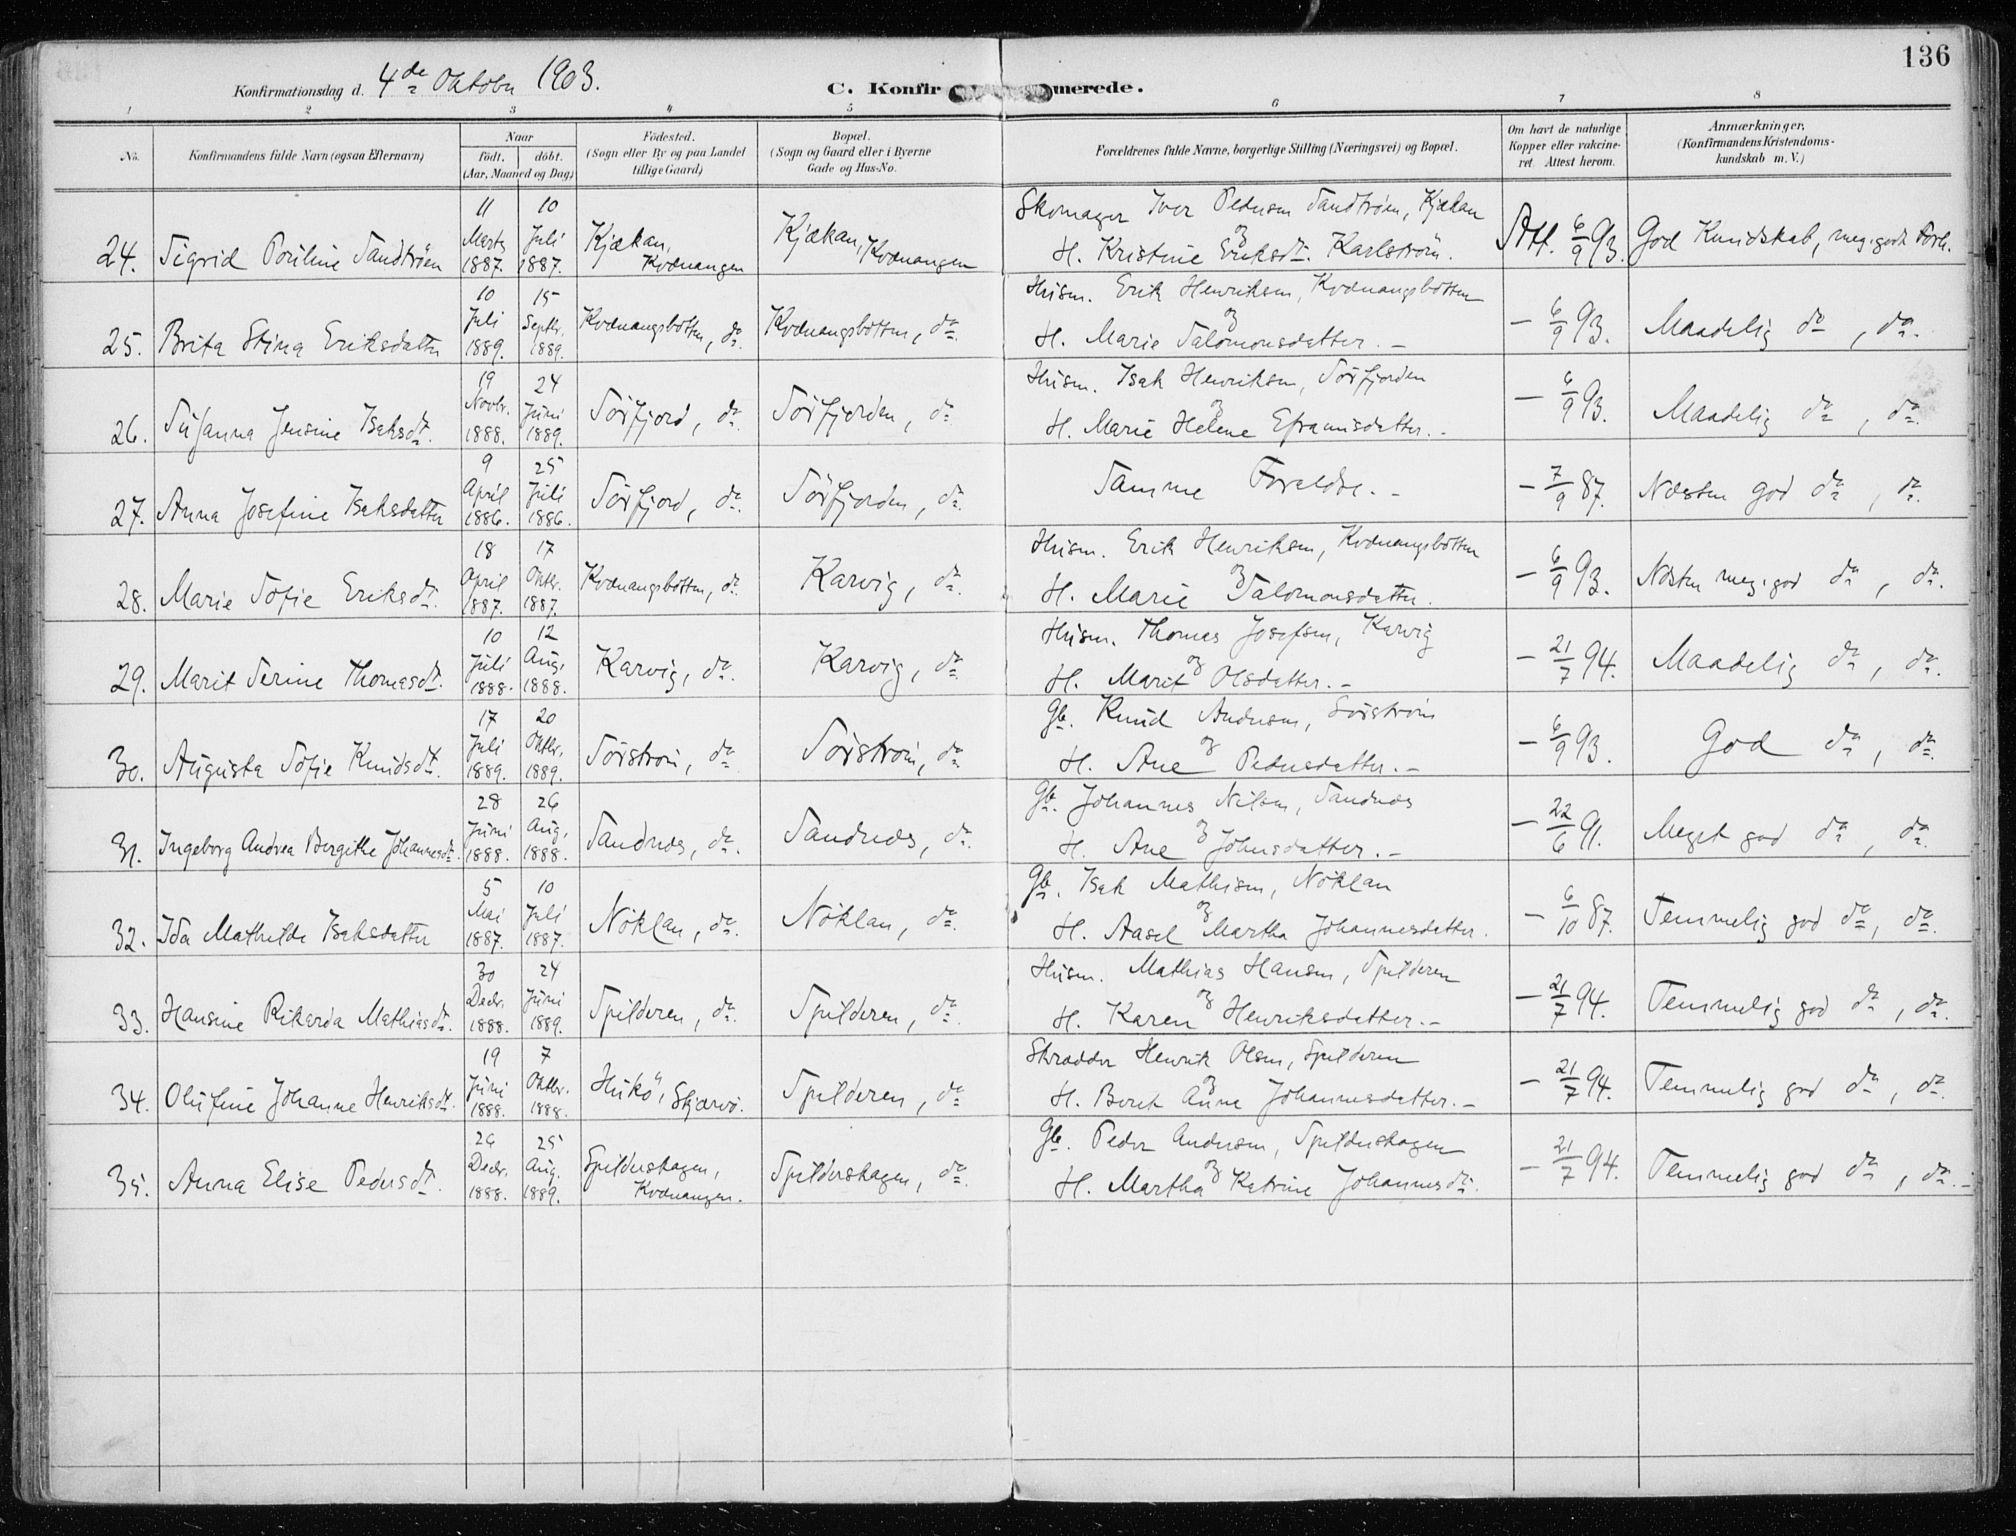 136
Konfirmationsdag d. 4de Oktober 1903.
C. Konfir merede.
1 2 3 4 5 6 7 8
No. Konfirmandens fulde Navn (ogsaa Efternavn) Naar født. døbt. (Aar, Maaned og Dag) Fødested. (Sogn eller By og paa Landet tillige Gaard) Bopæl. (Sogn og Gaard eller i Byerne Gade og Hus-No. Forældrenes fulde Navne, borgerlige Stilling (Næringsvei) og Bopæl. Om havt de naturlige Kopper eller vakcineret. Attest herom. Anmærkninger. (Konfirmandens Kristendomskundskab m. V.)
11 10 Skomager Iver Pedersen Sandtrøen, Kjækan
24. Sigrid Pouline Sandtrøen Marts 1887. Juli 1887. Kjækan, Kvænangen Kjækan, Kvænangen og H. Kristine Eriksdt. Karlstrøm. Att. 6/9 93. God Kundskab, meg. godt Forh.
10 15 Husm. Erik Henriksen, Kvænangsbotten
25. Brita Stina Eriksdatter Juli 1889. Septbr. 1889. Kvænangsbotten, do. Kvænangsbotten, do. og H. Marie Salomonsdatter. – – 6/9 93. Maadelig do, do.
19 24 Husm. Isak Henriksen, Sørfjorden
26. Susanna Jensine Isaksdt. Novbr. 1888. Juni 1889. Sørfjord, do. Sørfjorden, do. og H. Marie Helene Efraimsdatter. – – 6/9 93. Maadelig do, do.
9 25
27. Anna Josefine Isaksdatter April 1886. Juli 1886. Sørfjord, do. Sørfjorden, do. Samme Foreldre. – – 7/9 87. Næsten god do, do.
18 17 Husm. Erik Henriksen, Kvænangsbotten
28. Marie Sofie Eriksdt. April 1887. Oktbr. 1887. Kvænangsbotten, do. Karvig, do. og H. Marie Salomonsdatter. – 6/9 93. Næsten meg. god do, do.
10 12 Husm. Thomas Josefsen, Karvig
29. Marit Serine Thomasdt. Juli 1888. Aug. 1888. Karvig, do. Karvig, do. og H. Marit Olsdatter. – – 21/7 94. Maadelig do, do.
17 20 Gb. Knud Andersen, Sørstrøm
30. Augusta Sofie Knudsdt. Juli 1889. Oktbr. 1889. Sørstrøm, do. Sørstrøm, do. og H. Ane Pedersdatter. – – 6/9 93. God do, do.
28 26 Gb. Johannes Nilsen, Sandnes
31. Ingeborg Andrea Bergitte Johannesdt. Juni 1888. Aug. 1888. Sandnes, do. Sandnes, do. og H. Ane Johnsdatter. – – 22/6 91. Meget god do, do.
5 10 Gb. Isak Mathisen, Nøklan
32. Ida Mathilde Isaksdatter Mai 1887. Juli 1887. Nøklan, do. Nøklan, do. og H. Aasel Martha Johannesdatter. – 6/10 87. Temmelig god do, do.
30 24 Husm. Mathias Hansen, Spilderen
33. Hansine Rikarda Mathiasdt. Decbr. 1888. Juni 1889. Spilderen, do. Spilderen, do. og H. Karen Henriksdatter. – – 21/7 94. Temmelig god do, do.
19 7 Skrædder Henrik Olsen, Spilderen
34. Olufine Johanne Henriksdt. Juni 1888. Oktbr. 1888. Hukø, Skjærvø. Spilderen, do. og H. Beret Anna Johannesdatter. – – 21/7 94. Temmelig god do, do.
26 25 Gb. Peder Andersen, Spilderhagen
35. Anna Elise Pedersdt. Decbr. 1888. Aug. 1889. Spilderhagen, Kvænangen. Spilderhagen, do. og H. Martha Katrine Johannesdt. – 21/7 94. Temmelig god do, do. –